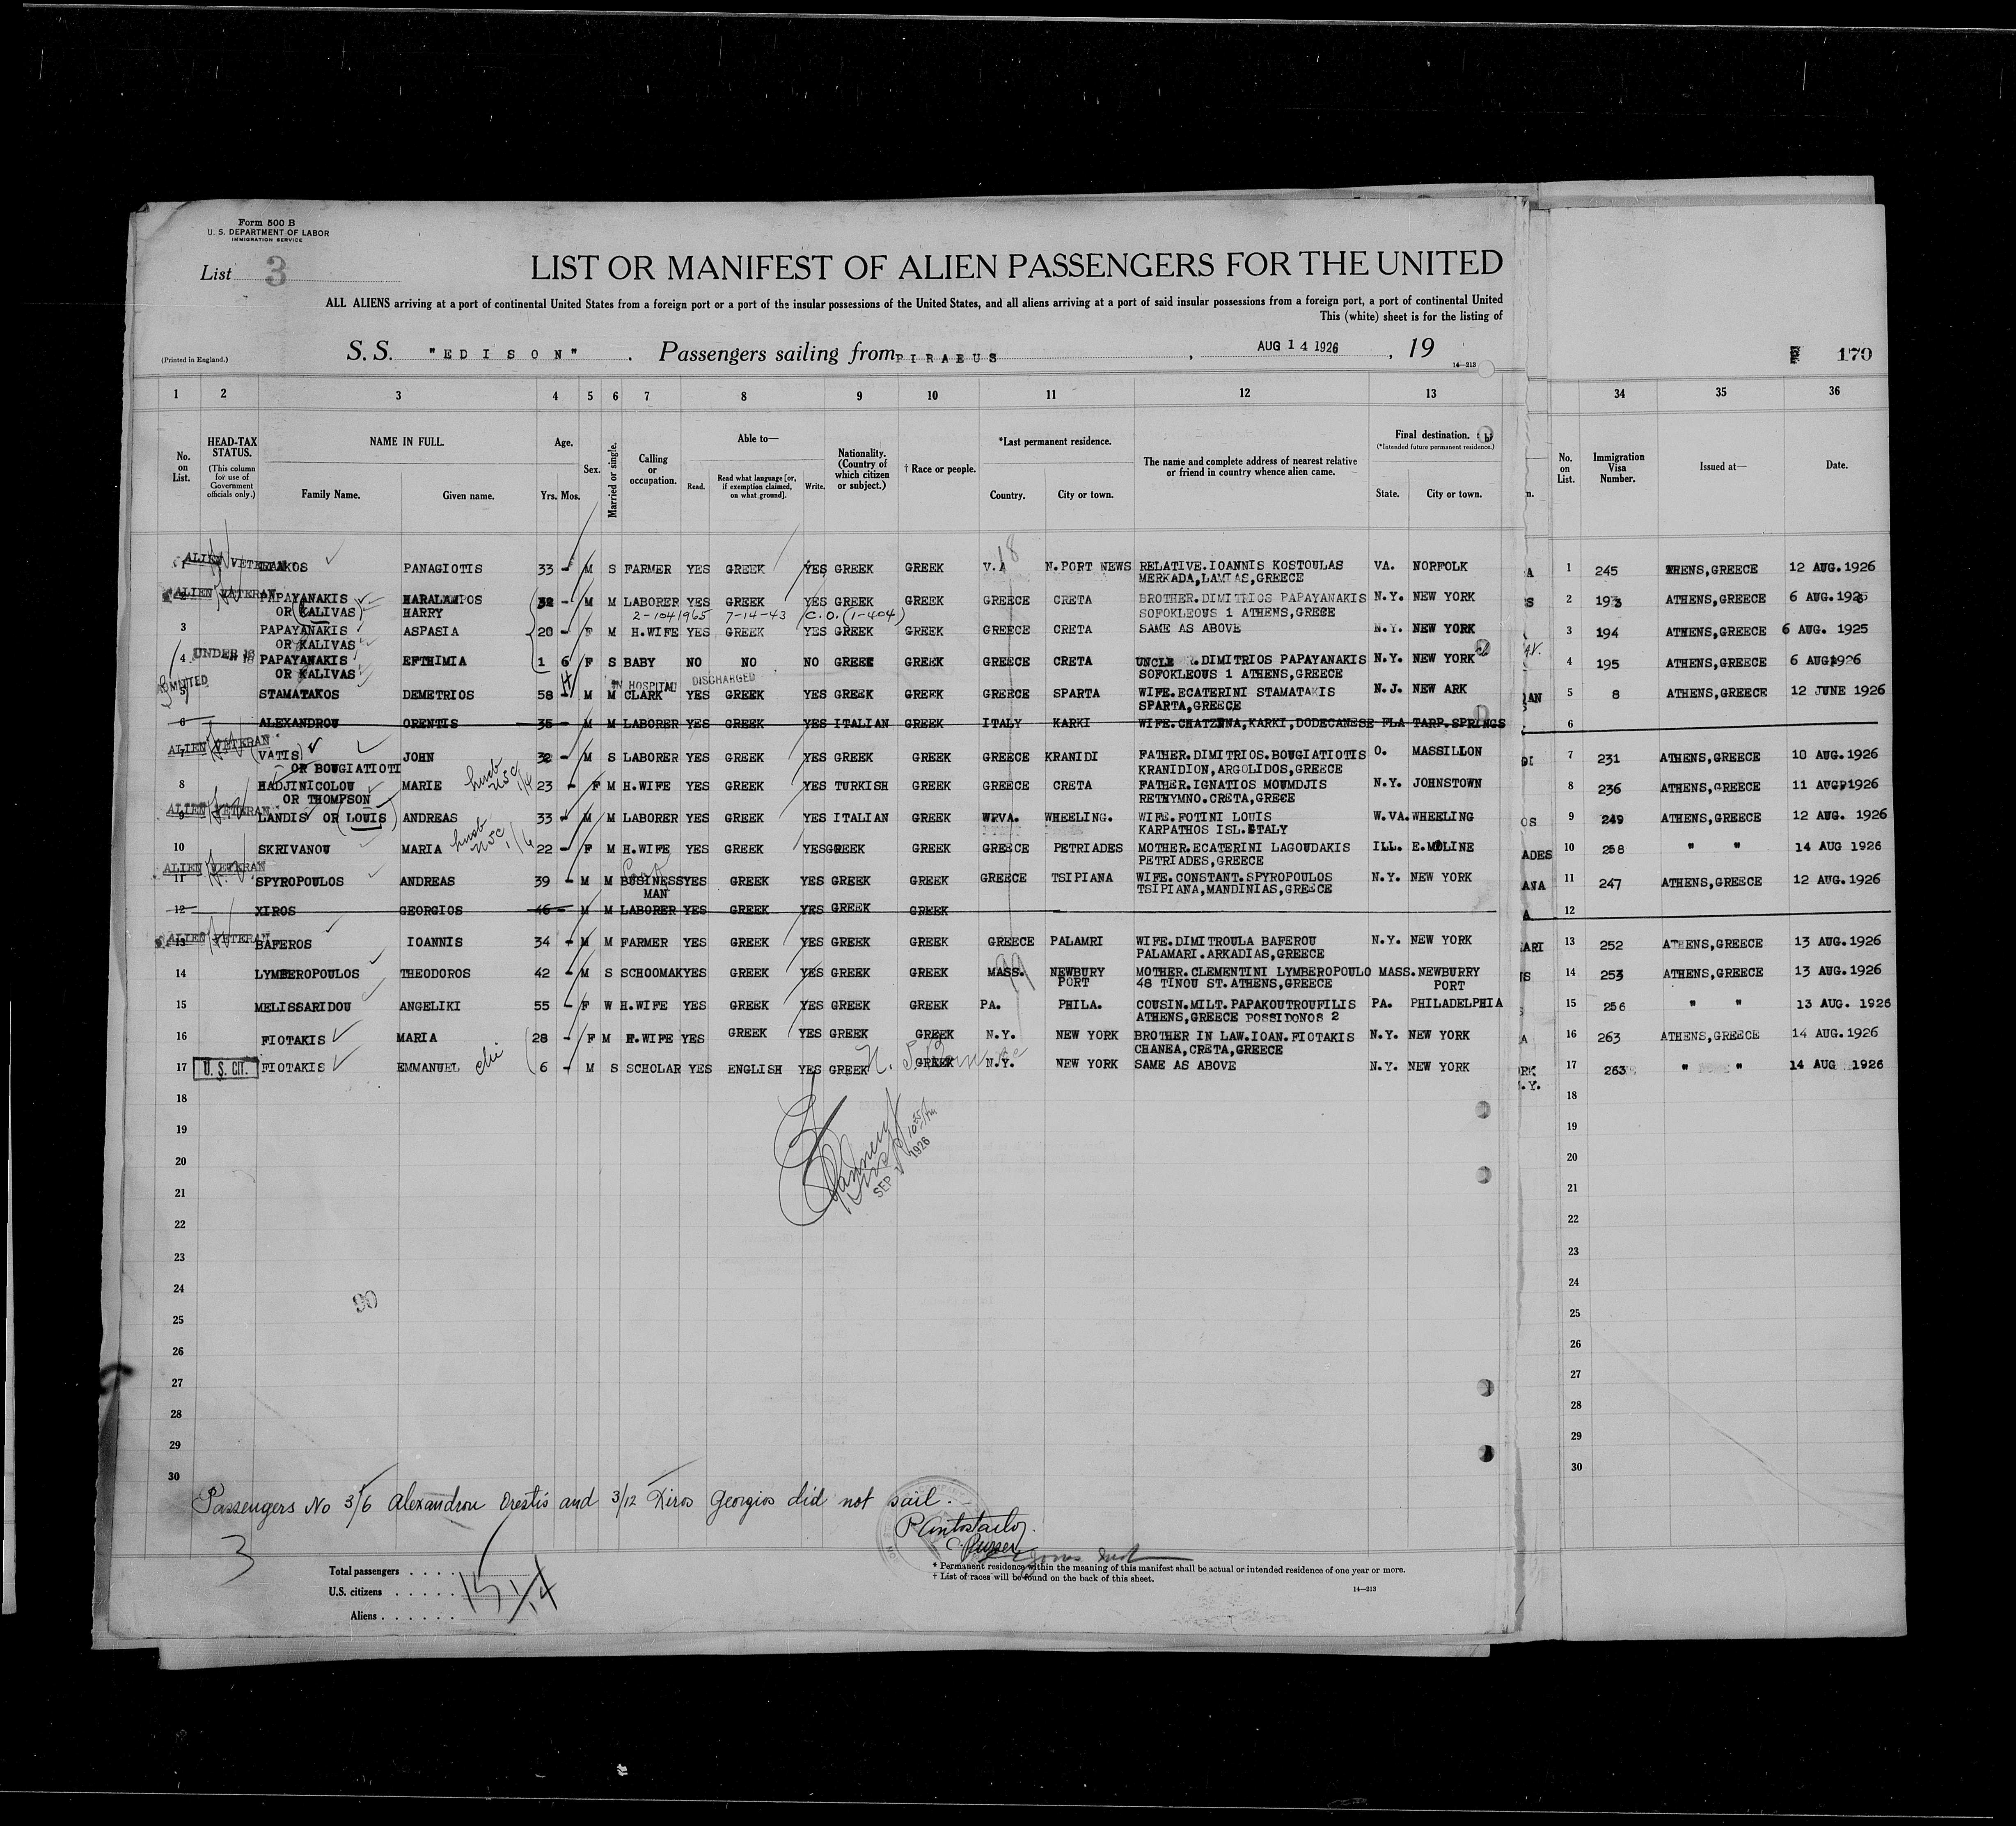 Form 500 B
U. S. DEPARTMENT OF LABOR
IMMIGRATION SERVICE
List 3
LIST OR MANIFEST OF ALIEN PASSENGERS FOR THE UNITED
ALL ALIENS arriving at a port of continental United States from a foreign port or a port of the insular possessions of the United States, and all aliens arriving at a port of said insular possessions from a foreign port, a port of continental United
This (white) sheet is for the listing of
(Printed in England.)
S. S. "EDISON" . Passengers sailing from PIRAEUS , AUG 14 1926 , 19
14—213
170
1 2 3 4 5 6 7 8 9 10 11 12 13 34 35 36
No. on List.
HEAD-TAX STATUS.
(This column for use of Government officials only.)
NAME IN FULL.
Family Name. Given name.
Age.
Yrs. Mos.
Sex.
Married or single.
Calling or occupation.
Able to—
Read. Read what language [or, if exemption claimed, on what ground]. Write.
Nationality. (Country of which citizen or subject.)
† Race or people.
*Last permanent residence.
Country. City or town.
The name and complete address of nearest relative or friend in country whence alien came.
Final destination.
(*Intended future permanent residence.)
State. City or town.
No. on List.
Immigration Visa Number.
Issued at—
Date.
1 ALIEN VETERAN PANAGIOTIS 33 - M S FARMER YES GREEK YES GREEK GREEK V.A N.PORT NEWS RELATIVE.IOANNIS KOSTOULAS VA. NORFOLK 1 245 THENS,GREECE 12 AUG.1926
MERKADA,LAMIAS,GREECE
ALIEN VETERAN PAPAYANAKIS HARALAMPOS 32 - M M LABORER YES GREEK YES GREEK GREEK GREECE CRETA BROTHER.DIMITRIOS PAPAYANAKIS N.Y. NEW YORK 2 193 ATHENS,GREECE 6 AUG.1926
OR (KALIVAS) HARRY 2-1041965 7-14-43 C.O. (1-404) SOFOKLEOUS 1 ATHENS,GRECE
3 PAPAYANAKIS ASPASIA 20 - F M H.WIFE YES GREEK YES GREEK GREEK GREECE CRETA SAME AS ABOVE N.Y. NEW YORK 3 194 ATHENS,GREECE 6 AUG. 1925
OR KALIVAS
4 UNDER 16 PAPAYANAKIS EFTHIMIA 1 6 F S BABY NO NO NO GREEK GREEK GREECE CRETA UNCLE .DIMITRIOS PAPAYANAKIS N.Y. NEW YORK 4 195 ATHENS,GREECE 6 AUG.1926
OR KALIVAS SOFOKLEOUS 1 ATHENS,GREECE
ADMITTED IN HOSPITAL DISCHARGED
5 STAMATAKOS DEMETRIOS 58 - M M CLARK YES GREEK YES GREEK GREEK GREECE SPARTA WIFE.ECATERINI STAMATAKIS N.J. NEW ARK 5 8 ATHENS,GREECE 12 JUNE 1926
SPARTA,GREECE
6 ALEXANDROU ORENTIS 35 - M M LABORER YES GREEK YES ITALIAN GREEK ITALY KARKI WIFE.CHATZENA,KARKI,DODECANESE FLA TARP.SPRINGS 6
ALIEN VETERAN (VATIS) JOHN 32 - M S LABORER YES GREEK YES GREEK GREEK GREECE KRANIDI FATHER.DIMITRIOS.BOUGIATIOTIS O. MASSILLON 7 231 ATHENS,GREECE 10 AUG.1926
OR BOUGIATIOTI KRANIDION,ARGOLIDOS,GREECE
8 HADJINICOLOU MARIE husb USC 1/4 23 - F M H.WIFE YES GREEK YES TURKISH GREEK GREECE CRETA FATHER.IGNATIOS MOUMDJIS N.Y. JOHNSTOWN 8 236 ATHENS,GREECE 11 AUG.1926
OR THOMPSON RETHYMNO.CRETA,GRECE
ALIEN VETERAN 9 LANDIS OR (LOUIS) ANDREAS 33 - M M LABORER YES GREEK YES ITALIAN GREEK W.VA. WHEELING. WIFE.FOTINI LOUIS W.VA. WHEELING 9 249 ATHENS,GREECE 12 AUG. 1926
KARPATHOS ISL.ITALY
10 SKRIVANOU MARIA husb USC 1/6 22 - F M H.WIFE YES GREEK YES GREEK GREEK GREECE PETRIADES MOTHER.ECATERINI LAGOUDAKIS ILL. E.MOLINE 10 258 " " 14 AUG 1926
PETRIADES,GREECE
ALIEN VETERAN 11 SPYROPOULOS ANDREAS 39 - M M BUSINESS YES GREEK YES GREEK GREEK GREECE TSIPIANA WIFE.CONSTANT.SPYROPOULOS N.Y. NEW YORK 11 247 ATHENS,GREECE 12 AUG.1926
MAN TSIPIANA,MANDINIAS,GREECE
12 XIROS GEORGIOS 46 - M M LABORER YES GREEK YES GREEK GREEK 12
ALIEN VETERAN 13 BAFEROS IOANNIS 34 - M M FARMER YES GREEK YES GREEK GREEK GREECE PALAMRI WIFE.DIMITROULA BAFEROU N.Y. NEW YORK 13 252 ATHENS,GREECE 13 AUG.1926
PALAMARI.ARKADIAS,GREECE
14 LYMBEROPOULOS THEODOROS 42 - M S SCHOOMAK YES GREEK YES GREEK GREEK MASS. NEWBURY PORT MOTHER.CLEMENTINI LYMBEROPOULO MASS. NEWBURRY PORT 14 253 ATHENS,GREECE 13 AUG.1926
48 TINOU ST.ATHENS,GREECE
15 MELISSARIDOU ANGELIKI 55 - F W H.WIFE YES GREEK YES GREEK GREEK PA. PHILA. COUSIN.MILT.PAPAKOUTROUFILIS PA. PHILADELPHIA 15 256 " " 13 AUG. 1926
ATHENS,GREECE POSSIDONOS 2
16 FIOTAKIS MARIA 28 - F M H.WIFE YES GREEK YES GREEK GREEK N.Y. NEW YORK BROTHER IN LAW.IOAN.FIOTAKIS N.Y. NEW YORK 16 263 ATHENS,GREECE 14 AUG.1926
CHANEA,CRETA,GREECE
17 U. S. CIT. FIOTAKIS EMMANUEL 6 - M S SCHOLAR YES ENGLISH YES GREEK GREEK N.Y. NEW YORK SAME AS ABOVE N.Y. NEW YORK 17 263 " " 14 AUG 1926
18 18
19 19
20 20
21 21
22 22
23 23
24 24
25 25
26 26
27 27
28 28
29 29
30 30
SEP 1926
90
Passengers No 3/6 Alexandrou Orestis and 3/12 Xiros Georgios did not sail.
Purser
3
Total passengers . . . .
U.S. citizens . . . . .
Aliens . . . . . .
* Permanent residence within the meaning of this manifest shall be actual or intended residence of one year or more.
† List of races will be found on the back of this sheet.
14—213